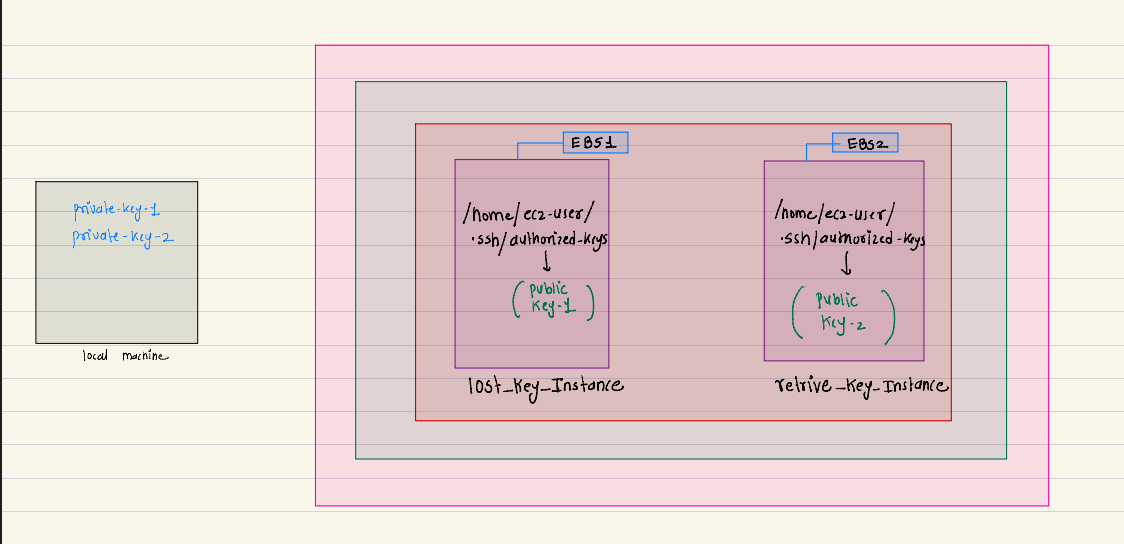 private-key-1
private-key-2
local machine
EBS1
/home/ec2-user/
.ssh/authorized-keys
(public
key-1)
lost_key_Instance
EBS2
/home/ec2-user/
.ssh/authorized-keys
(public
key-2)
retrive_key_Instance